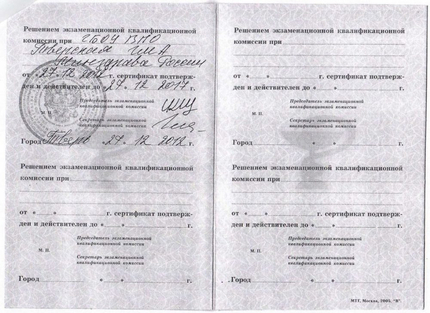 Решением экзаменационной квалификационной
комиссии при ГБОУ ВПО
Тверская ГМА
Минздрава России
от "27" 12 2012 г. сертификат подтверж-
ден и действителен до "27" 12 2017 г.
Председатель экзаменационной
квалификационной комиссии
М. П.
Секретарь экзаменационной
квалификационной комиссии
Город Тверь 27. 12 2012 г.
Решением экзаменационной квалификационной
комиссии при
от " " г. сертификат подтверж-
ден и действителен до " " г.
Председатель экзаменационной
квалификационной комиссии
М. П.
Секретарь экзаменационной
квалификационной комиссии
Город " " г.
Решением экзаменационной квалификационной
комиссии при
от " " г. сертификат подтверж-
ден и действителен до " " г.
Председатель экзаменационной
квалификационной комиссии
М. П.
Секретарь экзаменационной
квалификационной комиссии
Город " " г.
Решением экзаменационной квалификационной
комиссии при
от " " г. сертификат подтверж-
ден и действителен до " " г.
Председатель экзаменационной
квалификационной комиссии
М. П.
Секретарь экзаменационной
квалификационной комиссии
Город " " г.
МТГ, Москва, 2005, "В".